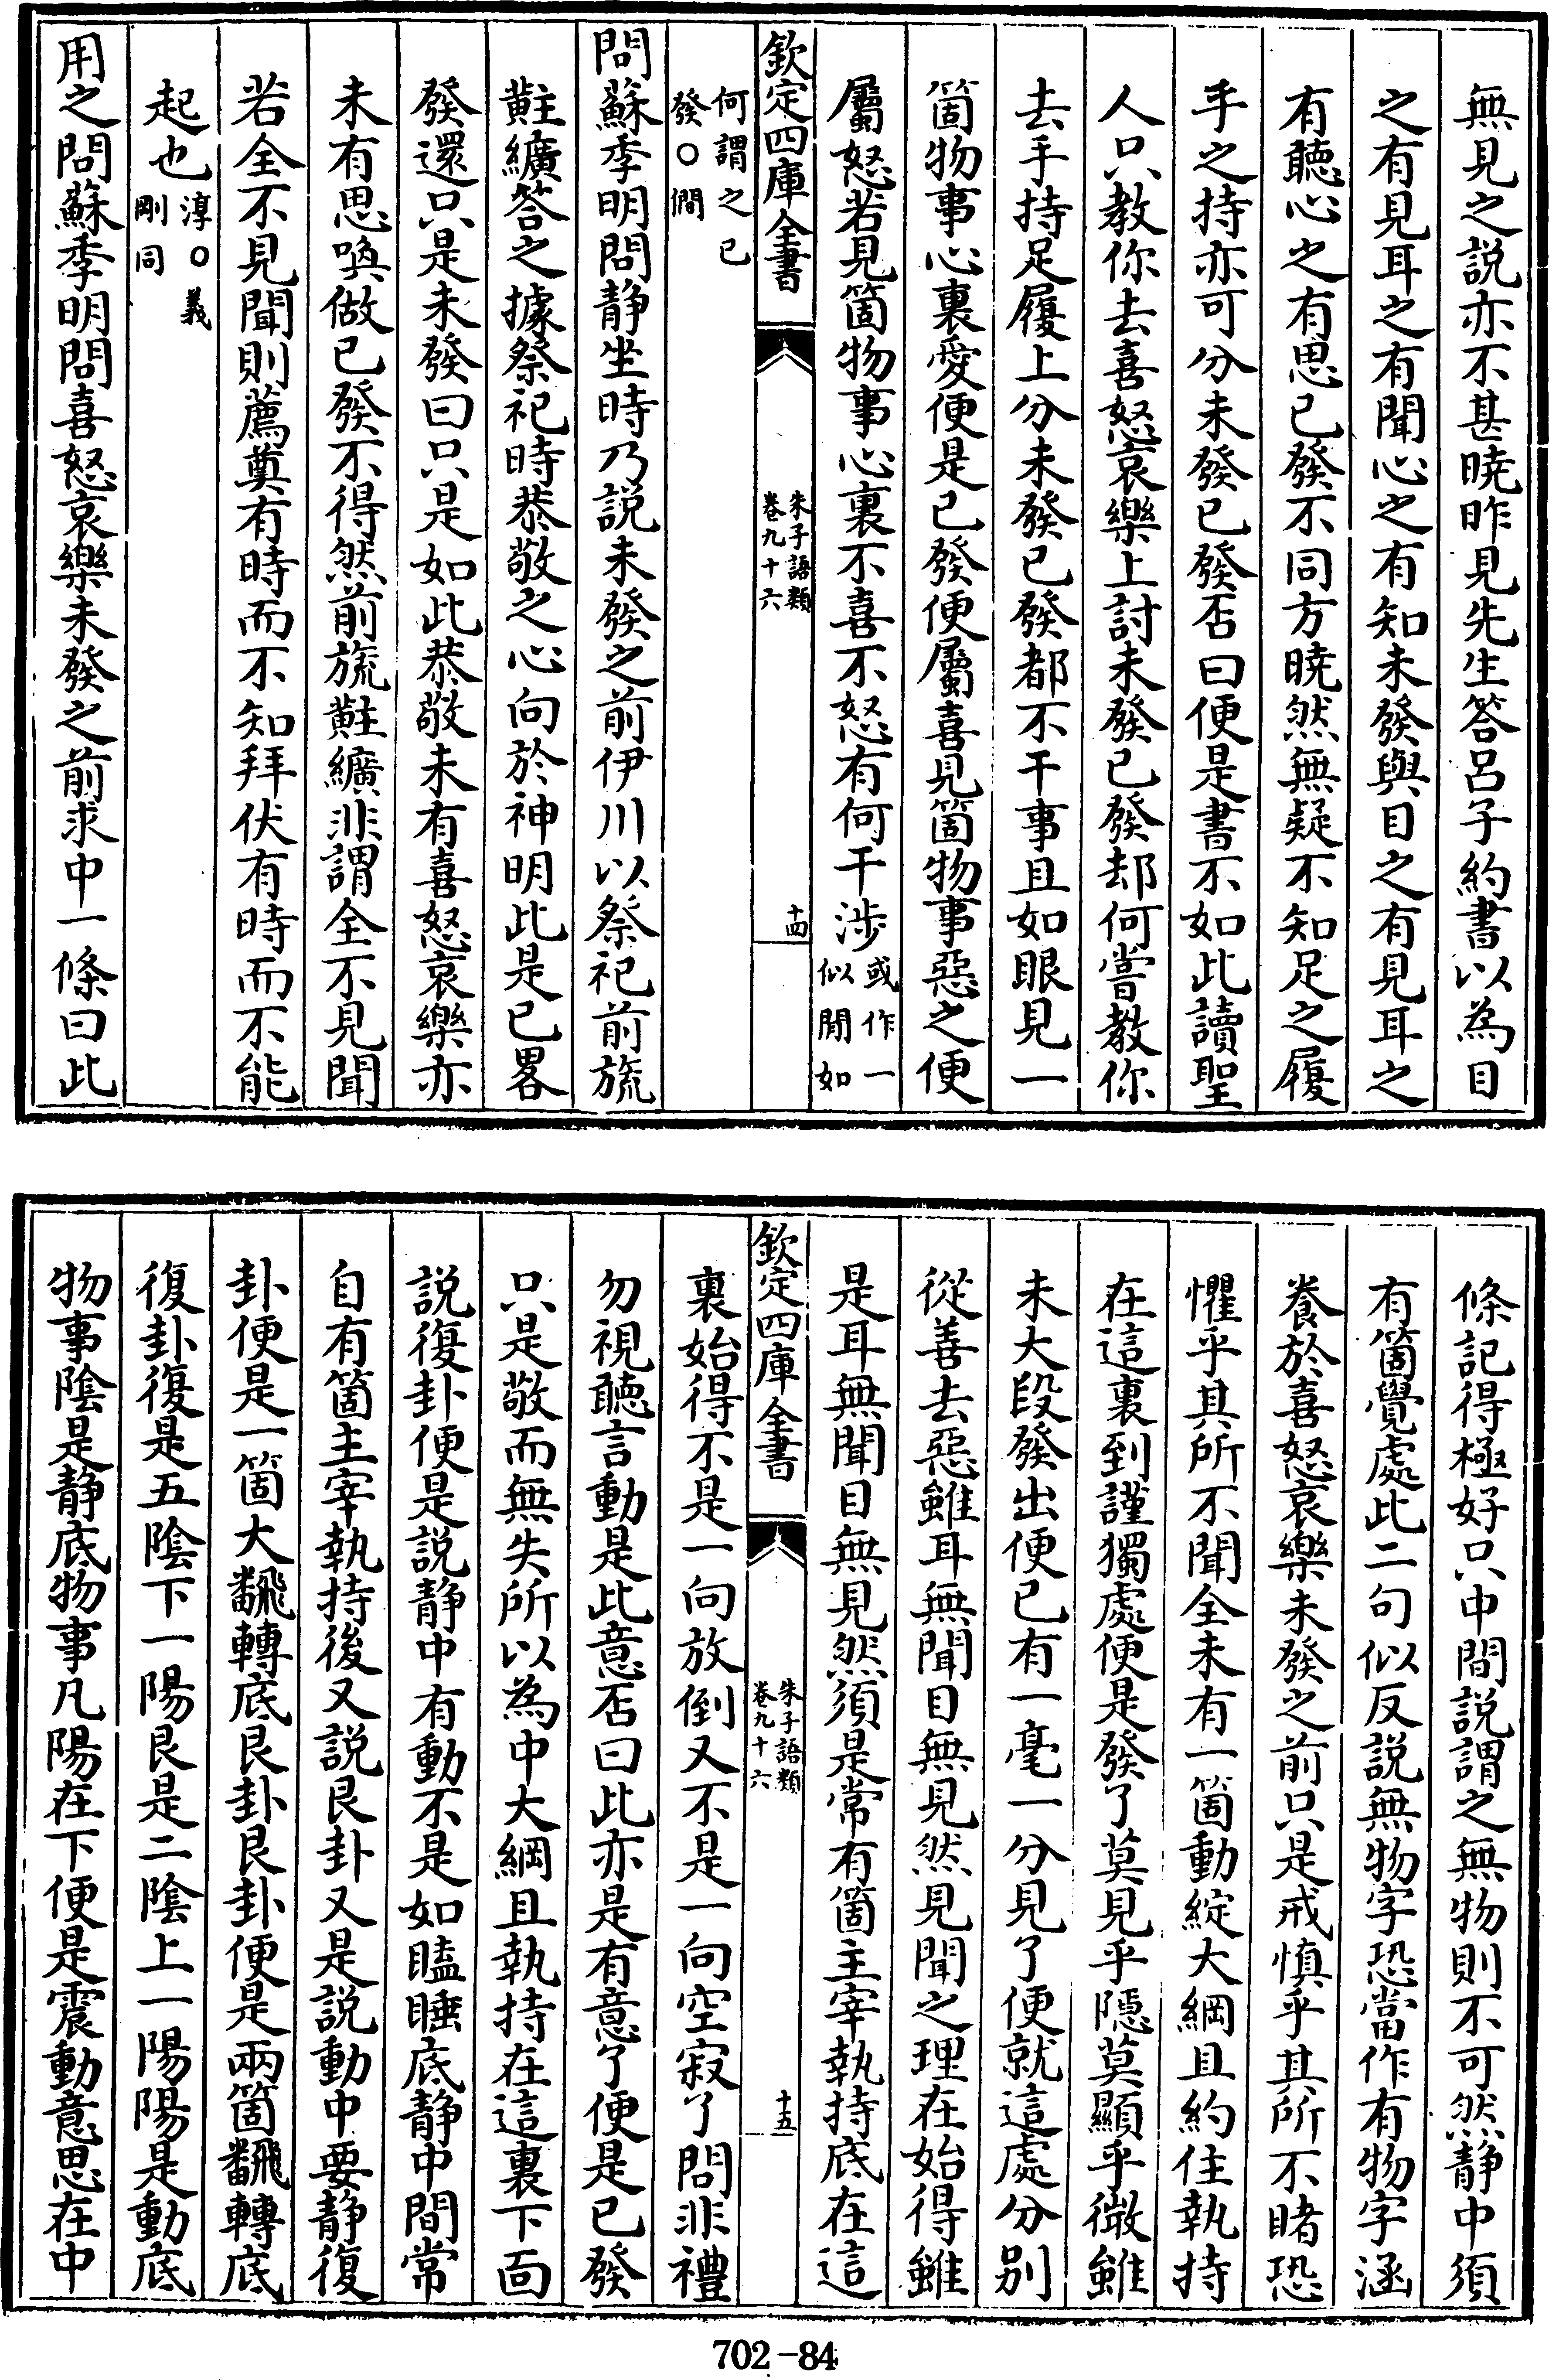 無見之説亦不甚曉昨見先生答呂子約書以為目
之有見耳之有聞心之有知未發與目之有見耳之
有聽心之有思已發不同方曉然無疑不知足之履
手之持亦可分未發已發否曰便是書不如此讀聖
人只教你去喜怒哀樂上討未發已發却何嘗教你
去手持足履上分未發已發都不干事且如眼見一
箇物事心裏愛便是已發便屬喜見箇物事惡之便
屬怒若見箇物事心裏不喜不怒有何干渉或作一似閒如
欽定四庫全書 朱子語類 卷九十六 十四
何謂之已發○僩
問蘇季明問静坐時乃説未發之前伊川以祭祀前旒
黈纊答之據祭祀時恭敬之心向於神明此是已畧
發還只是未發曰只是如此恭敬未有喜怒哀樂亦
未有思喚做已發不得然前旒黈纊非謂全不見聞
若全不見聞則薦奠有時而不知拜伏有時而不能
起也淳○義剛同
用之問蘇季明問喜怒哀樂未發之前求中一條曰此
條記得極好只中間説謂之無物則不可然静中須
有箇覺處此二句似反説無物字恐當作有物字涵
養於喜怒哀樂未發之前只是戒慎乎其所不睹恐
懼乎其所不聞全未有一箇動綻大綱且約住執持
在這裏到謹獨處便是發了莫見乎隱莫顯乎微雖
未大段發出便已有一毫一分見了便就這處分别
從善去惡雖耳無聞目無見然見聞之理在始得雖
是耳無聞目無見然須是常有箇主宰執持底在這
欽定四庫全書 朱子語類 卷九十六 十五
裏始得不是一向放倒又不是一向空寂了問非禮
勿視聽言動是此意否曰此亦是有意了便是已發
只是敬而無失所以為中大綱且執持在這裏下面
説復卦便是説静中有動不是如瞌睡底静中間常
自有箇主宰執持後又説艮卦又是説動中要静復
卦便是一箇大飜轉底艮卦艮卦便是兩箇飜轉底
復卦復是五陰下一陽艮是二陰上一陽陽是動底
物事陰是静底物事凡陽在下便是震動意思在中
702-84